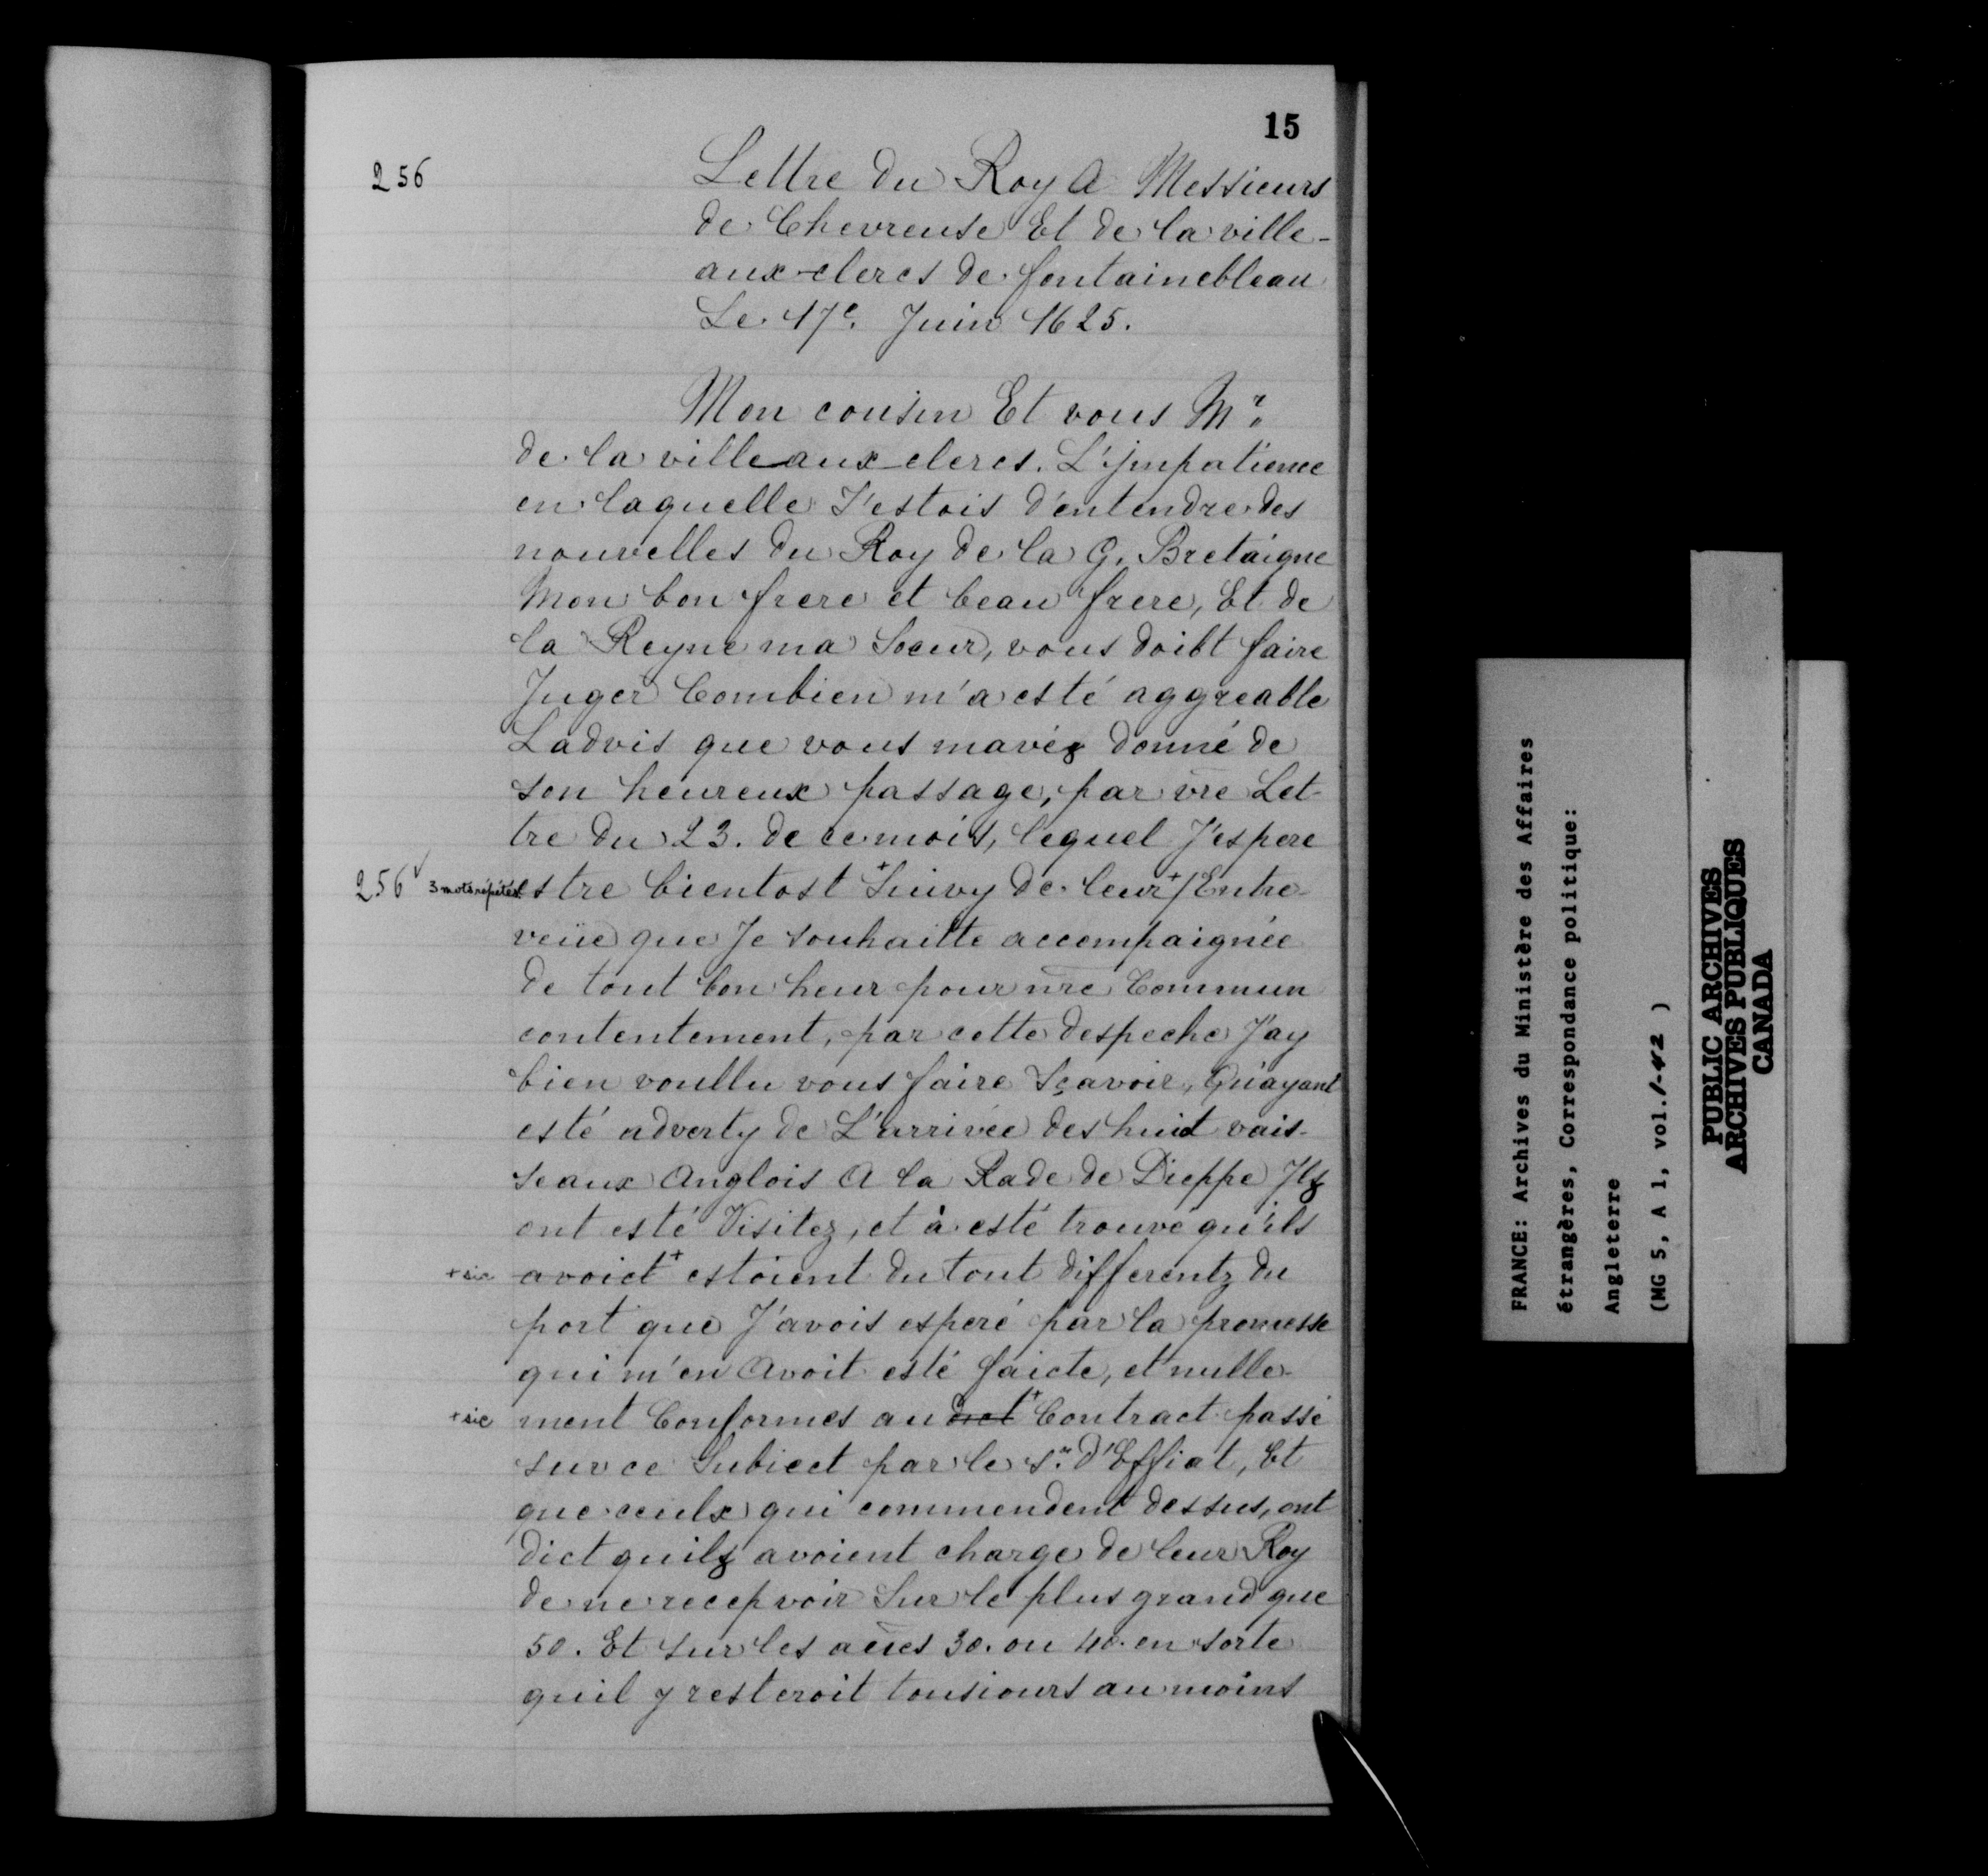 15
256
Lettre du Roy A Messieurs
de Chevreuse Et de la ville-
aux-clercs de fontainebleau
Le 17e. Juin 1625.
Mon cousin Et vous Mr.
de la ville-aux-clercs. L'jmpatience
en laquelle J'estois d'entendre des
nouvelles du Roy de la G. Bretaigne
Mon bon frere et beau frere, Et de
la Reyne ma Soeur, vous doibt faire
Juger Combien m'a esté aggreable
Ladvis que vous mavéz donné de
son heureux passage, par vr̄e Let-
tre du 23. de ce mois, lequel J'espere
256v 3 mots répétés estre bientost + Suivy de leur + / Entre-
veüe que Je souhaitte accompaignée
de tout bon heur pour nr̄e Commun
contentement, par cette despeche J'ay
bien voullu vous faire Sçavoir, Qu'ayant
esté adverty de L'arrivée des huict vais-
seaux Anglois A la Rade de Dieppe Jlz
ont esté Visitez, et à esté trouvé qu'ils
+ sic avoict + estoient du tout differentz du
port que J'avois esperé par la promesse
qui m'en Avoit esté faicte, et nulle-
+ sic ment Conformes au dict + Contract passé
sur ce Subiect par le Sr. d'Effiat, Et
que ceulx qui commendent dessus, ont
dict quilz avoient charge de leur Roy
de ne recepvoir Sur le plus grand que
50. Et sur les aūes 30. ou 40. en sorte
quil y resteroit tousiours au moins
FRANCE: Archives du Ministère des Affaires
étrangères, Correspondance politique:
Angleterre
(MG 5, A 1, vol.1-42 )
PUBLIC ARCHIVES
ARCHIVES PUBLIQUES
CANADA